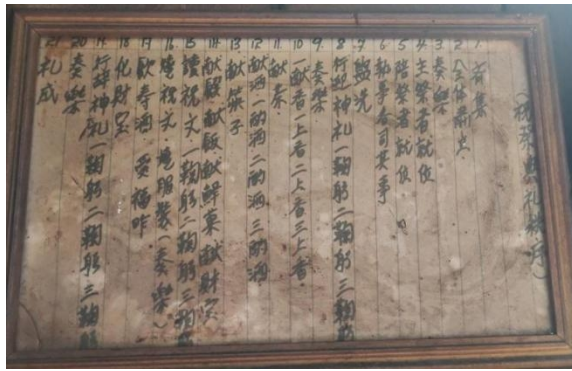 典礼秩序)
1. 齊集
2. 全体肅立
3. 奏樂
4. 主祭者就位
5. 陪祭者就位
6. 執事各司其事
7. 盥洗
8. 行迎神礼一鞠躬二鞠躬三鞠躬
9. 奏樂
10. 一献香一上香二上香三上香
11. 献茶
12. 献酒一酌酒二酌酒三酌酒
13. 献筷子
14. 献飯献鮮菓献財宝
15. 讀祝文一鞠躬二鞠躬三鞠躬
16. 焚祝文燒服裝(奏樂)
17. 飲寿酒受福胙
18. 化財宝
19. 行辞神礼一鞠躬二鞠躬三鞠躬
20. 奏樂
21. 礼成